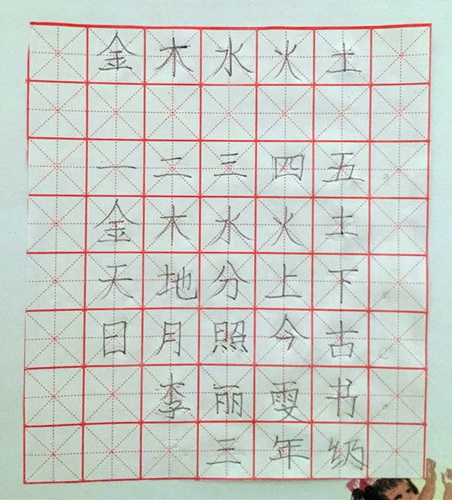 金木水火土
一二三四五
金木水火土
天地分上下
日月照今古
李丽雯书
三年级